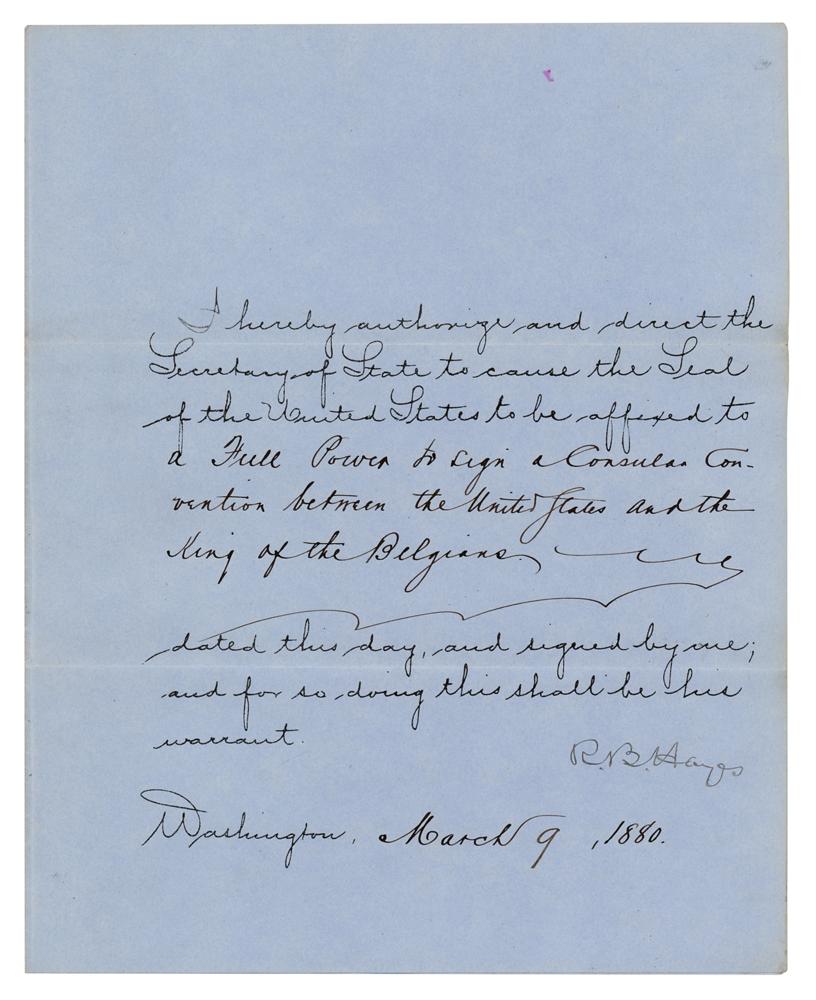 I hereby authorize and direct the
Secretary of State to cause the Seal
of the United States to be affixed to
a Full Power to sign a Consular Con-
vention between the United States and the
King of the Belgians
dated this day, and signed by me;
and for so doing this shall be his
warrant.
R.B. Hayes
Washington, March 9, 1880.